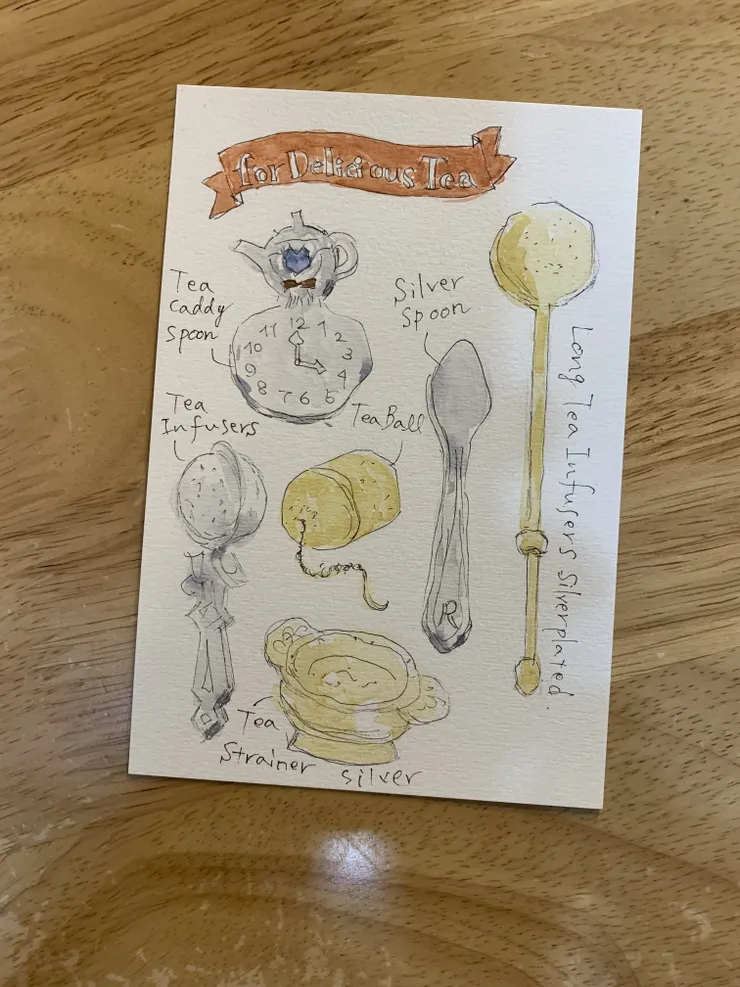 for Delicious Tea
Tea
Caddy
Spoon
11 12 1
10 2
9 3
8 4
7 6 5
Silver
Spoon
Tea
Infusers
Tea Ball
R
Long Tea Infusers Silverplated.
Tea
Strainer silver